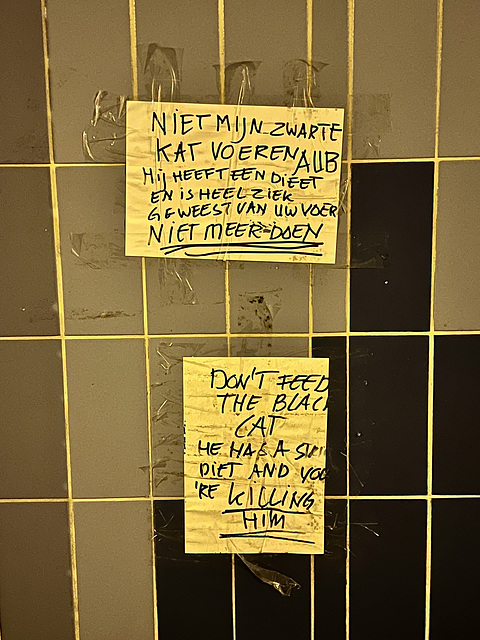 NIET MIJN ZWARTE
KAT VOEREN AUB
HIJ HEEFT EEN DIEET
EN IS HEEL ZIEK
GEWEEST VAN UW VOER
NIET MEER DOEN
DON'T FEED
THE BLAC
CAT
HE HAS A
DIET AND YOU
'RE KILLING
HIM